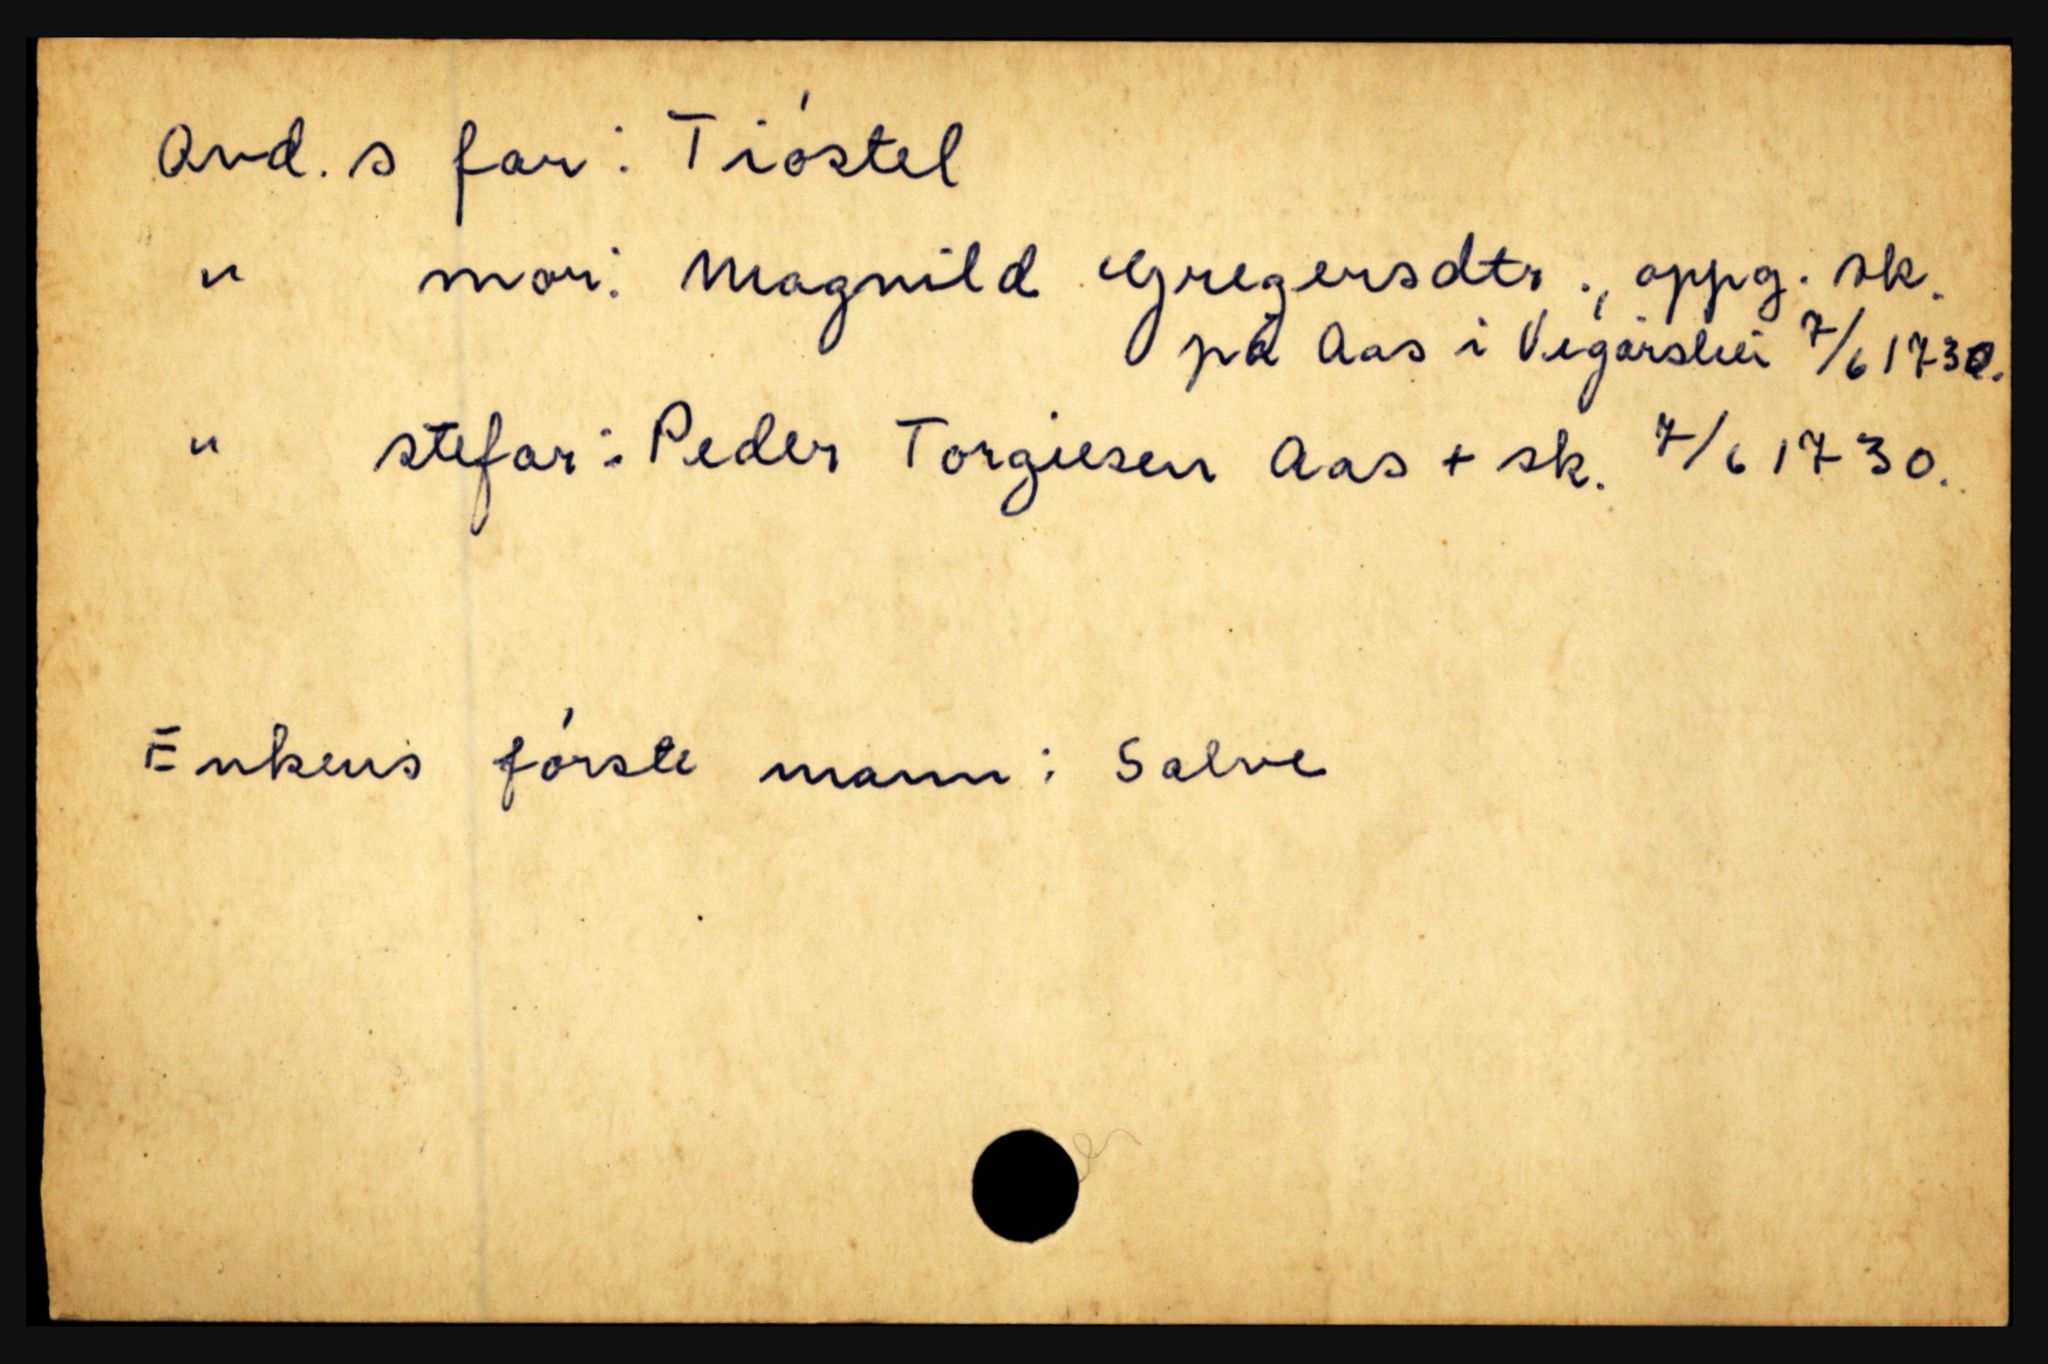 Avd. s far: Tióstel
" mor: Magnild Gregersdtr., oppg. sk.
på Aas i Vegårshei 7/6 1730.
" stefar: Peder Torgiesen Aas + sk. 7/6 1730.
Enkens fórste mann: Salve